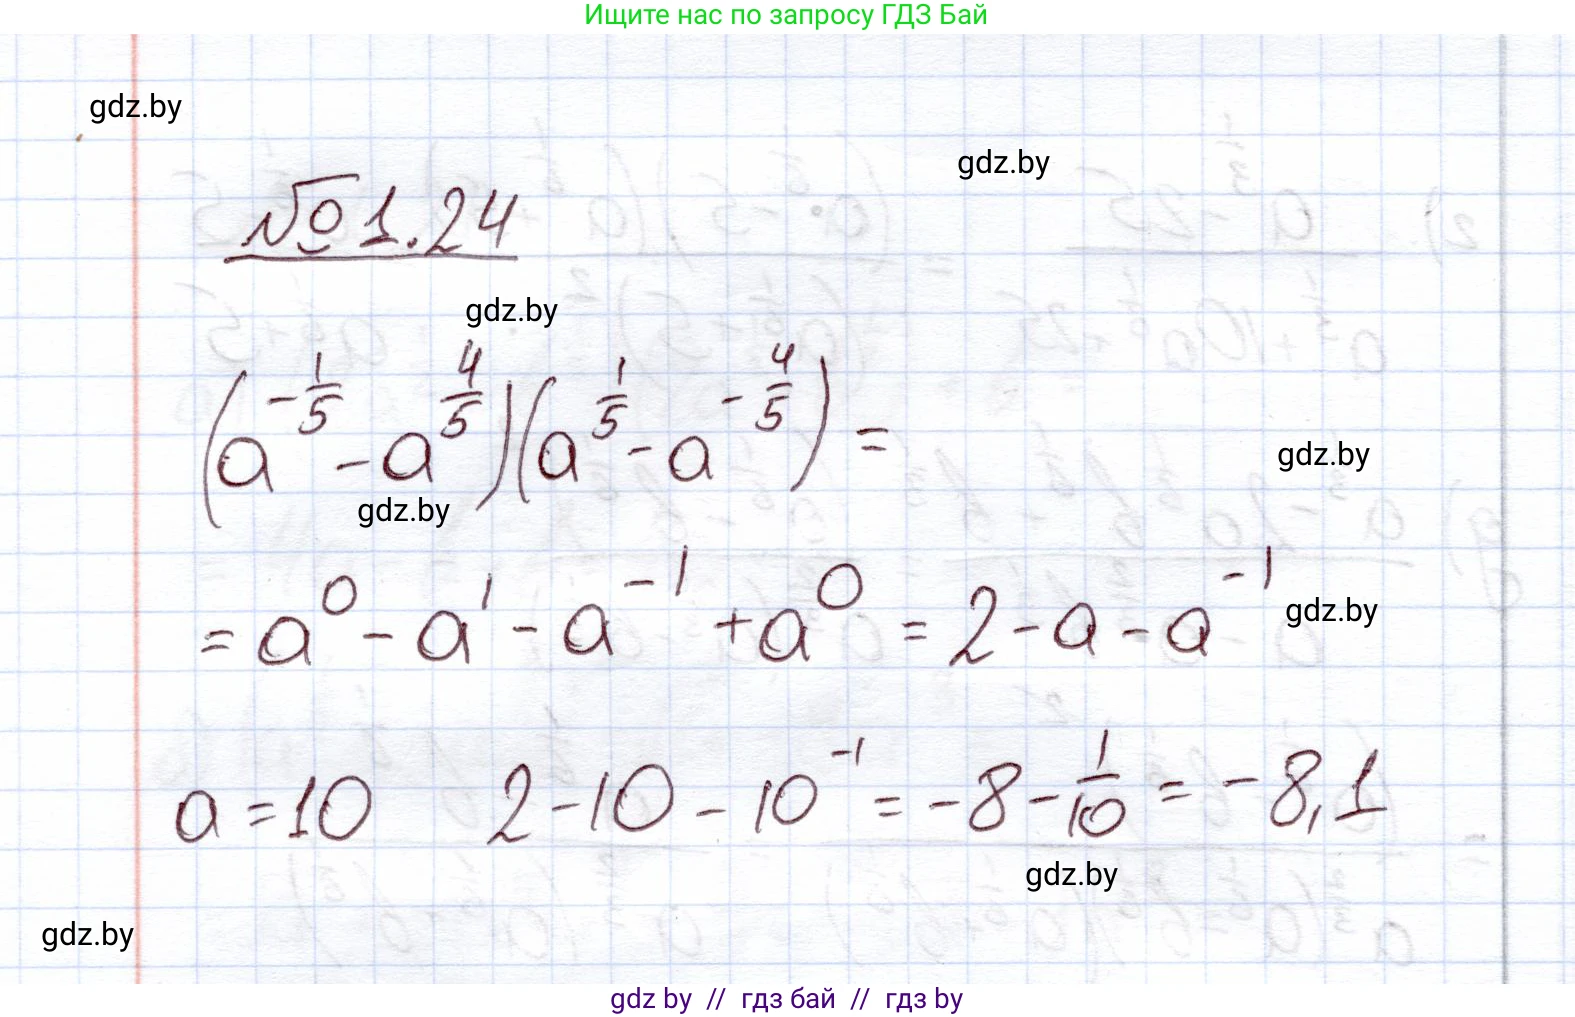 Ищите нас по запросу ГДЗ Бай
gdz.by
gdz.by
№1.24
gdz.by
(a^{-1/5} - a^{4/5})(a^{1/5} - a^{-4/5}) =
gdz.by
gdz.by
= a^0 - a^1 - a^{-1} + a^0 = 2 - a - a^{-1}
gdz.by
a = 10 2 - 10 - 10^{-1} = -8 - 1/10 = -8,1
gdz.by
gdz.by
gdz by // гдз бай // гдз by